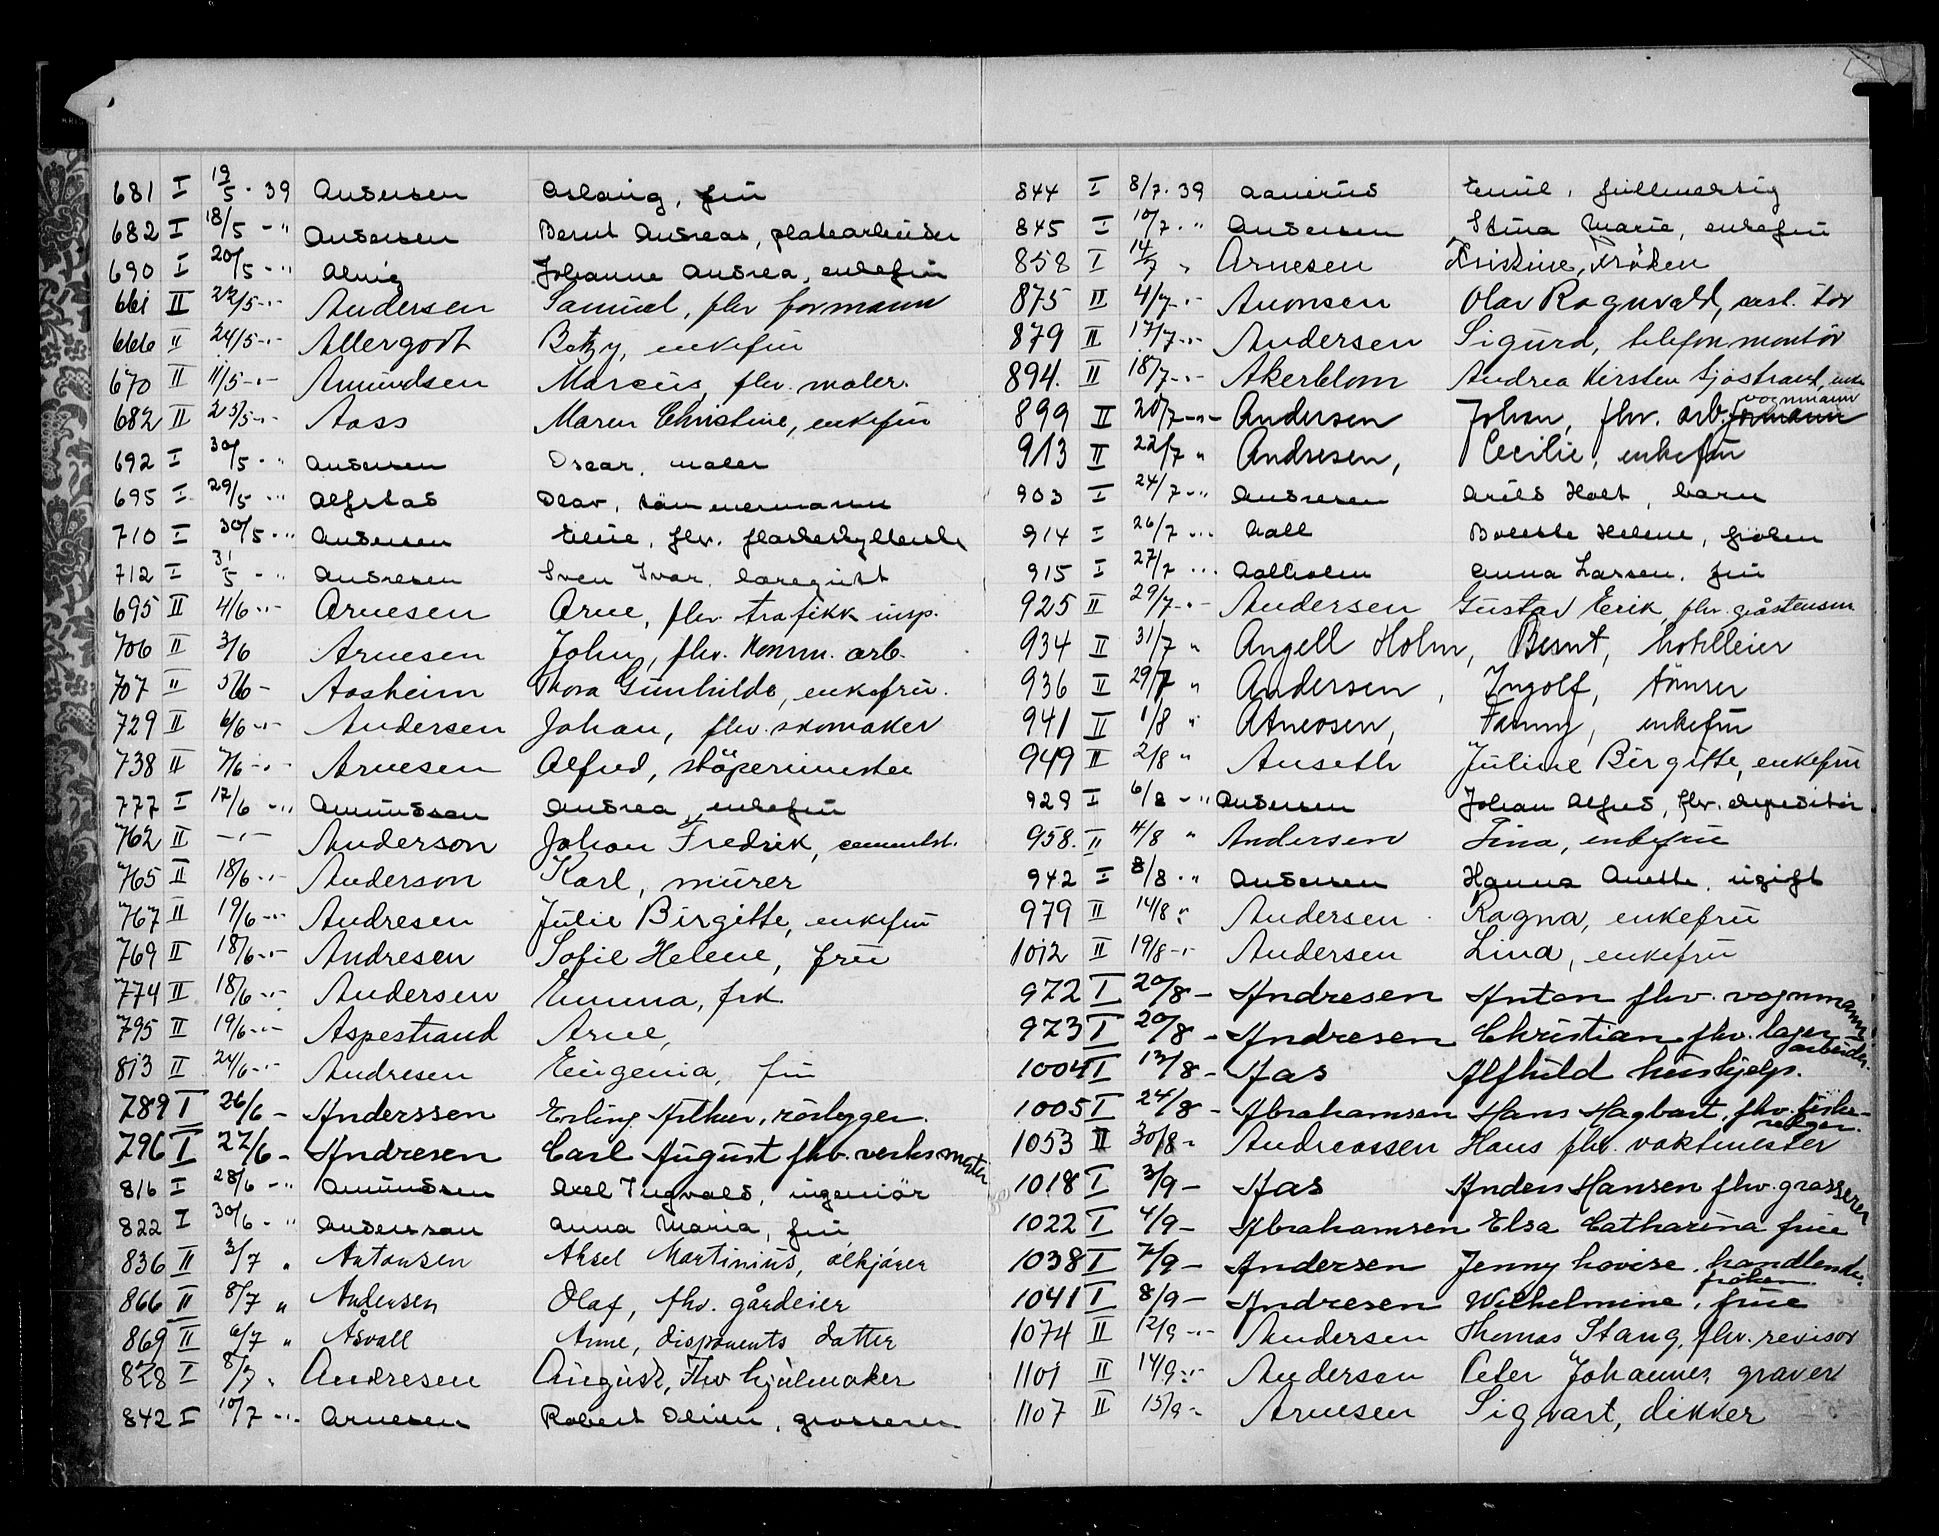 681 I 19/5 - 39 Andersen Aslaug, fru
682 I 18/5 - " Andersen Bernt Andreas, platearbeider
690 I 20/5 - " Alvig Johanne Andrea, enkefru
661 II 22/5 -"- Andersen Samuel, fhv formann
666 II 24/5 -"- Allergodt Betzy, enkefru
670 II 11/5 -"- Amundsen Marcus, fhv. maler.
682 II 25/5 -"- Aass Maren Christine, enkefru
692 I 30/5 - " Andersen Oscar, maler
695 I 29/5 - " Alfstad Olav, tømmermann
710 I 30/5 - " Andersen Eline, fhv. flaskeskyllerske
712 I 31/5 - " Andresen Sven Ivar, læregutt
695 II 4/6 -"- Arnesen Arne, fhv. trafikk insp.
706 II 3/6 Arnesen John, fhv. komm. arb.
707 " 5/6 - Aasheim Thora Gunhilde, enkefru.
729 II 6/6 -"- Andersen Johan, fhv. skomaker
738 II 7/6 -"- Arnesen Alfred, støperimester
777 I 17/6 - " Amundsen Andrea, enkefru
762 II -"- Anderson Johan Fredrik,
765 II 18/6 -"- Anderson Karl, murer
767 II 19/6 -"- Andresen Julie Birgitte, enkefru
769 II 18/6 -"- Andresen Sofie Helene, fru
774 II 18/6 -"- Andersen Emma, frk.
795 II 19/6 -"- Aspestrand Arne,
813 II 24/6 -"- Andresen Eugenia, fru
789 I 26/6 - Anderssen Erling Arthur, rørlegger.
796 I 27/6 - Andresen Carl August fhv. verksmester
816 I 28/6 - " Amundsen Axel Ingvald, ingeniør
822 I 30/6 - " Andersson Anna Maria, fru
836 II 3/7 " Antonsen Aksel Martinius, ølkjører
866 II 8/7 " Andersen Olaf, fhv. gårdeier
869 II 6/7 " Åsvall Anne, disponents datter
828 I 8/7 " Andresen August, Fhv hjulmaker
842 I 10/7 -"- Arnesen Robert Olsen, grosserer
844 I 8/7 - 39 Aanerud Emil, fullmektig
845 I 10/7 - " Andersen Stina Marie, enkefru
858 I 14/7 " Arnesen Kristine, Frøken
875 II 4/7 -"- Aronsen Olav Ragnvald,
879 II 17/7 -"- Andersen Sigurd, telefonmontør
894. II 18/7 -"- Akerblom Andrea Kirsten Sjøstrand, enke
899 II 20/7 -"- Andersen Johan, fhv. arb. formann vognmann
913 II 22/7 " Andresen, Cecilie, enkefru
903 I 24/7 - " Andresen Arild Holt, barn
914 I 26/7 - " Aall Bolette Helene, frøken
915 I 27/7 - " Aalholm Anna Larsen, fru
925 II 29/7 -"- Andersen Gustav Erik, fhv.
934 II 31/7 " Angell Holm, Bernt, hotelleier
936 II 29/7 " Andersen, Ingolf, tømrer
941 II 1/8 " Arnesen, Fanny, enkefru
949 II 2/8 " Anseth Juline Birgitte, enkefru
929 I 6/8 - " Andersen Johan Alfred, fhv. ekspeditør
958. II 4/8 " Andersen Tina, enkefru
942 I 8/8 - " Andersen Hanna Anette, ugift
979 II 14/8 " Andersen Ragna, enkefru
1012 II 19/8 -"- Andersen Lina, enkefru
972 I 20/8 - Andresen Anton fhv. vognmann
973 I 20/8 - Andresen Christian fhv. lagerarbeider
1004 I 13/8 - Aas Alfhild hushjelp.
1005 I 24/8 - Abrahamsen Hans Hagbart, fhv. fiskeselger.
1053 II 30/8 - Andreassen Hans fhv. vaktmester
1018 I 3/9 - Aas Anders Hansen fhv. grosserer
1022 I 4/9 - Abrahamsen Elsa Catharina frue
1038 I 7/9 - Andersen Jenny Lovise, handlende. frøken
1041 I 8/9 - Andresen Wilhelmine, frue
1074 II 12/9 -"- Andersen Thomas Stang, fhv. revisor
1101 II 14/9 -"- Andersen Peter Johannes, graver
1107 II 15/9 - Arnesen Sigvart, dikker